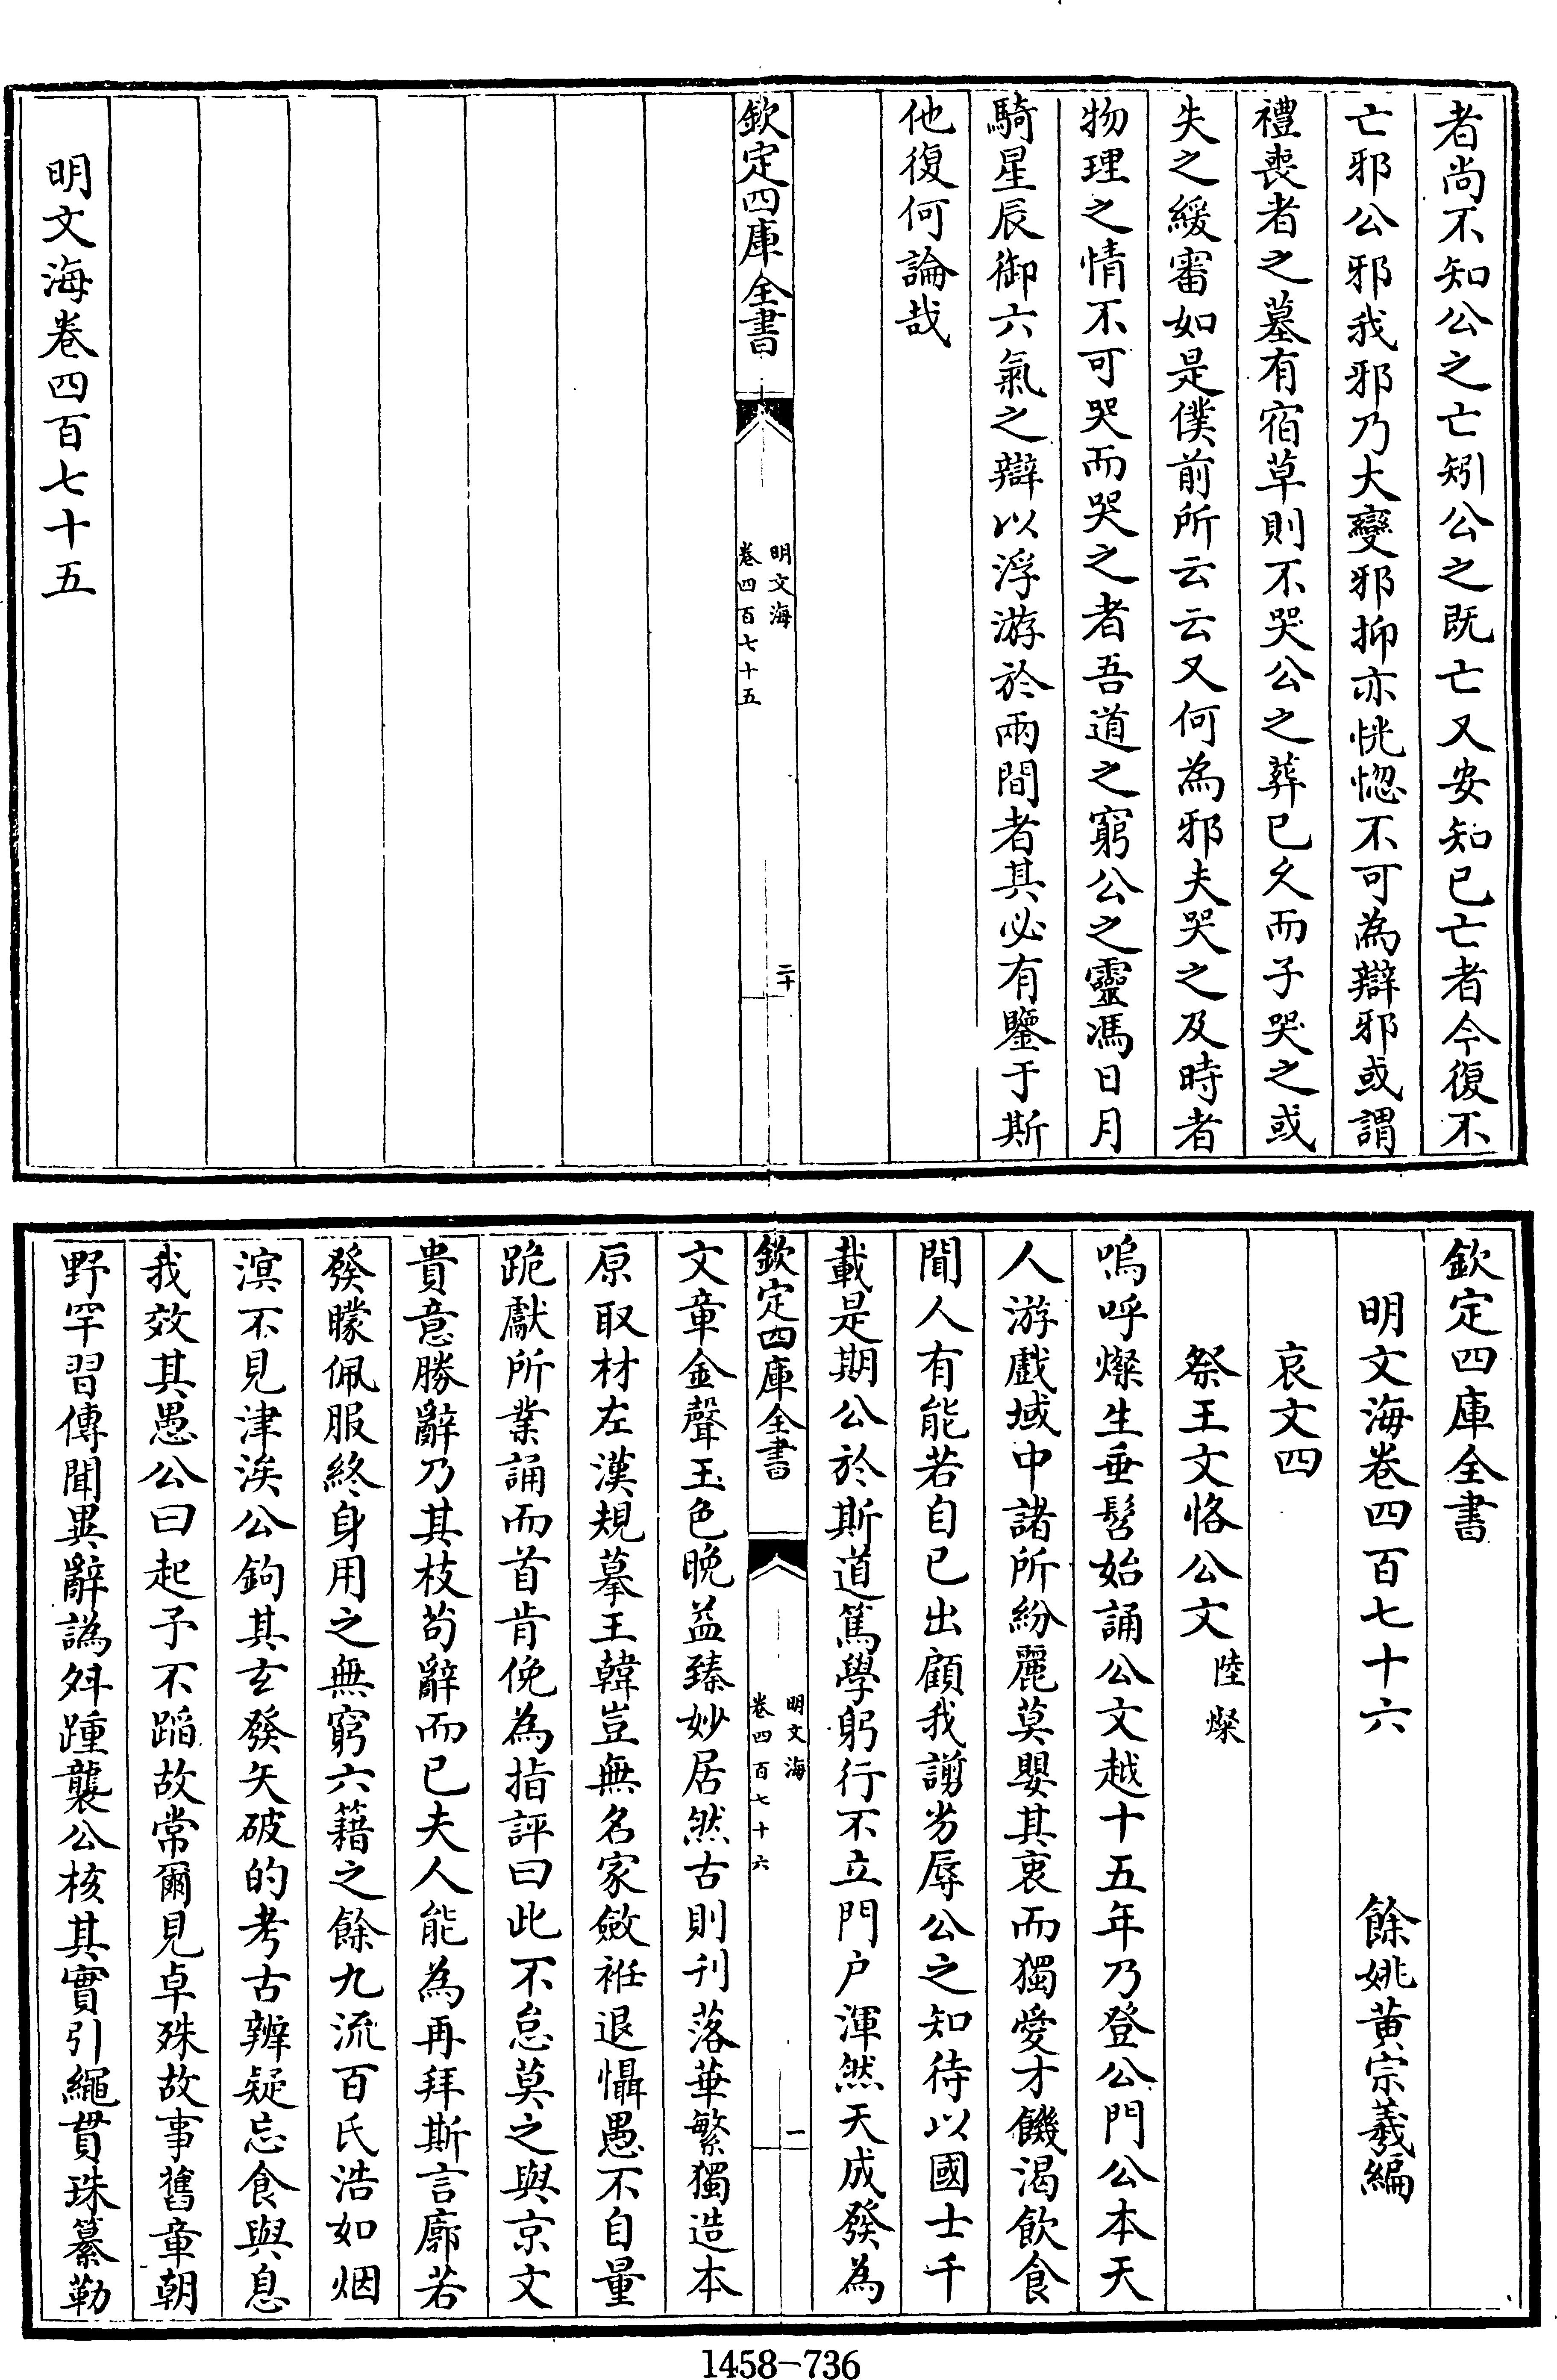 者尚不知公之亡矧公之既亡又安知已亡者今復不
亡邪公邪我邪乃大變邪抑亦恍惚不可為辯邪或謂
禮喪者之墓有宿草則不哭公之葬已久而子哭之或
失之緩審如是僕前所云云又何為邪夫哭之及時者
物理之情不可哭而哭之者吾道之窮公之靈馮日月
騎星辰御六氣之辯以浮游於兩間者其必有鑒于斯
他復何論哉
欽定四庫全書
明文海
卷四百七十五
二十
明文海卷四百七十五
欽定四庫全書
明文海卷四百七十六
餘姚黃宗羲編
哀文四
祭王文恪公文 陸燦
嗚呼燦生垂髫始誦公文越十五年乃登公門公本天
人游戲域中諸所紛麗莫嬰其衷而獨愛才饑渴飲食
聞人有能若自已出顧我謭劣辱公之知待以國士千
載是期公於斯道篤學躬行不立門户渾然天成發為
欽定四庫全書
明文海
卷四百七十六
一
文章金聲玉色晚益臻妙居然古則刋落華繁獨造本
原取材左漢規摹王韓豈無名家斂袵退懾愚不自量
跪獻所業誦而首肯俛為指評曰此不怠莫之與京文
貴意勝辭乃其枝茍辭而已夫人能為再拜斯言廓若
發矇佩服終身用之無窮六籍之餘九流百氏浩如烟
溟不見津涘公鉤其玄發矢破的考古辨疑忘食與息
我效其愚公曰起予不蹈故常爾見卓殊故事舊章朝
野罕習傳聞異辭譌舛踵襲公核其實引繩貫珠纂勒
1458-736